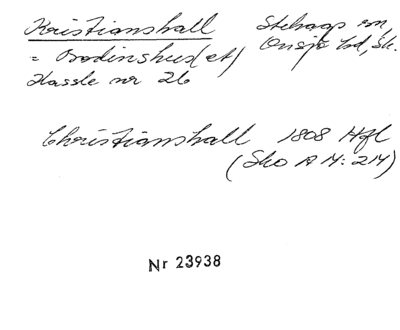 Kristianshall Stehags sn,
= Bodinshus(et) Onsjö hd, Sk.
Hassle nr 26
Christianshall 1808 Hfl
(Sko A IV: 214)
Nr 23938